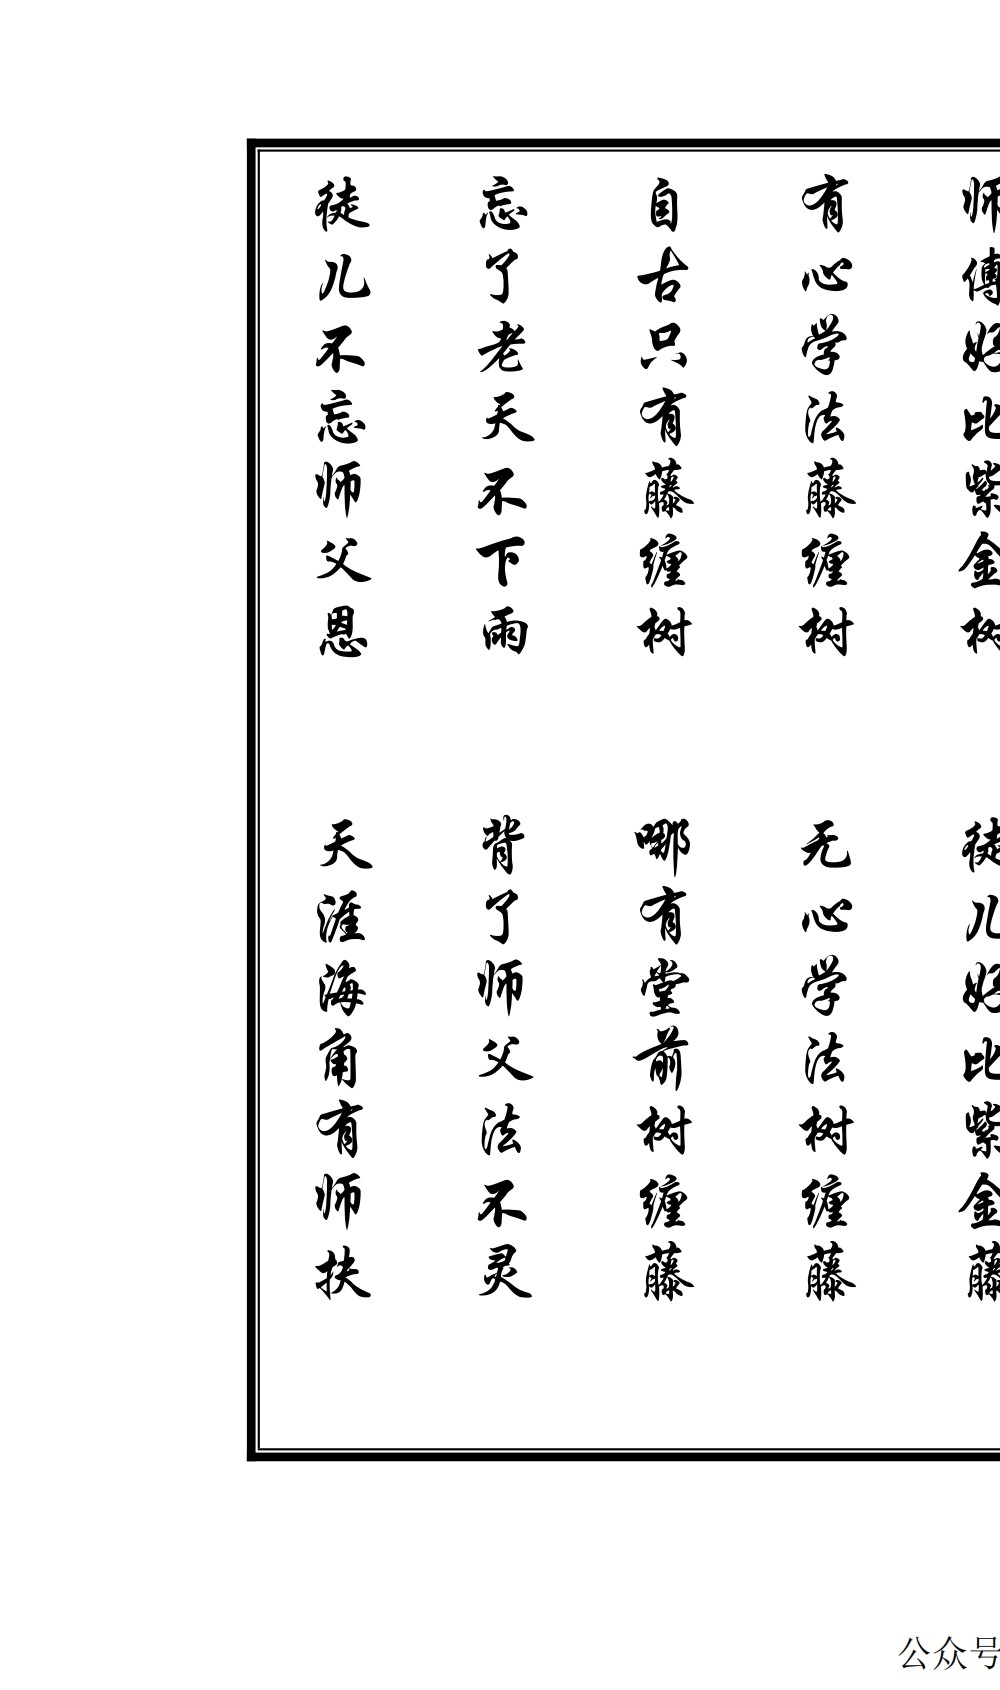 师傅好比紫金树
徒儿好比紫金藤
有心学法藤缠树
无心学法树缠藤
自古只有藤缠树
哪有堂前树缠藤
忘了老天不下雨
背了师父法不灵
徒儿不忘师父恩
天涯海角有师扶
公众号